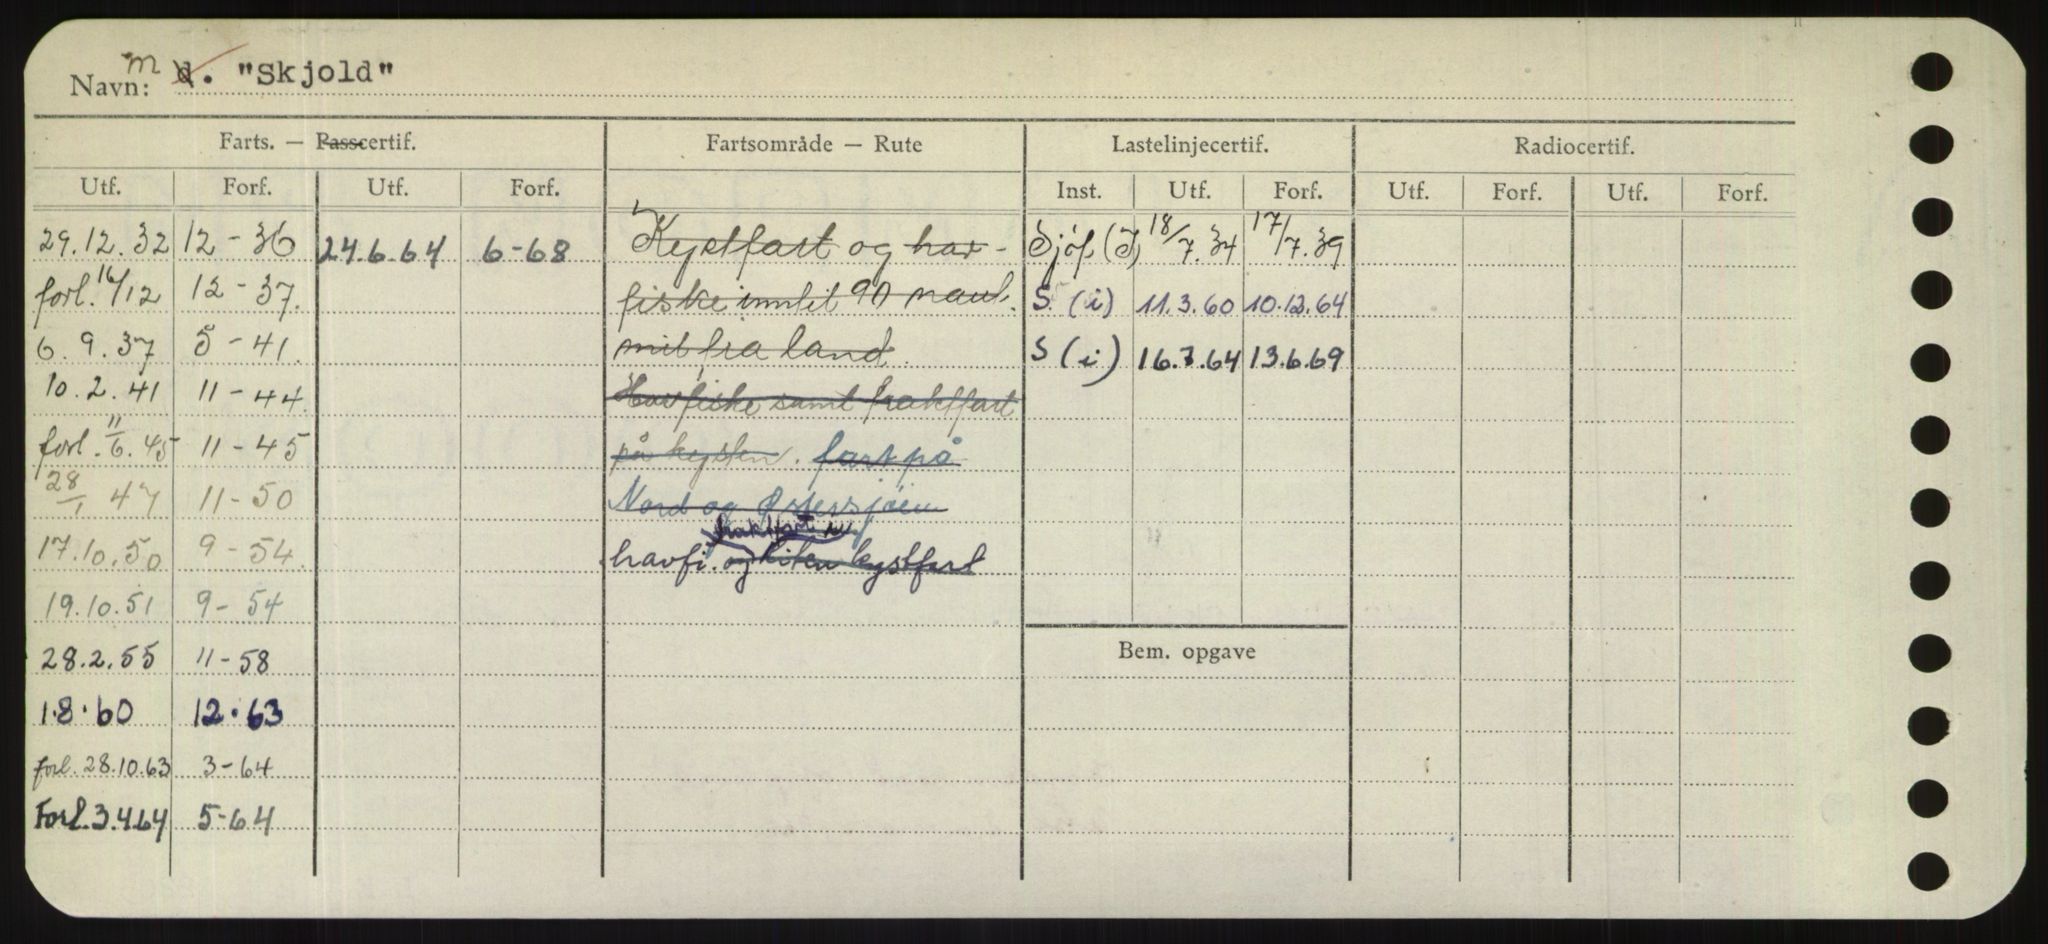 Navn: m d. "Skjold"
Farts. — Passcertif. Fartsområde — Rute Lastelinjecertif. Radiocertif.
Utf. Forf. Utf. Forf. Inst. Utf. Forf. Utf. Forf. Utf. Forf.
29.12.32 12-36 24.6.64 6-68 Kystfart og hav- Sjöf (I) 18/7.34 17/7.39
forl. 16/12 12-37. fiske inntil 90 naut. S (i) 11.3.60 10.12.64
6.9.37 5-41. mil fra land. S (i) 16.7.64 13.6.69
10.2.41 11-44. Havfiske samt fraktfart
forl. 11/6.45 11-45 på kysten. fart på
28/1 47 11-50 Nord og Østersjöen
fraktfart i
17.10.50 9-54. havfi. og liten kystfart
19.10.51 9-54
28.2.55 11-58 Bem. opgave
1.8.60 12.63
forl. 28.10.63 3-64
Forl. 3.4.64 5-64